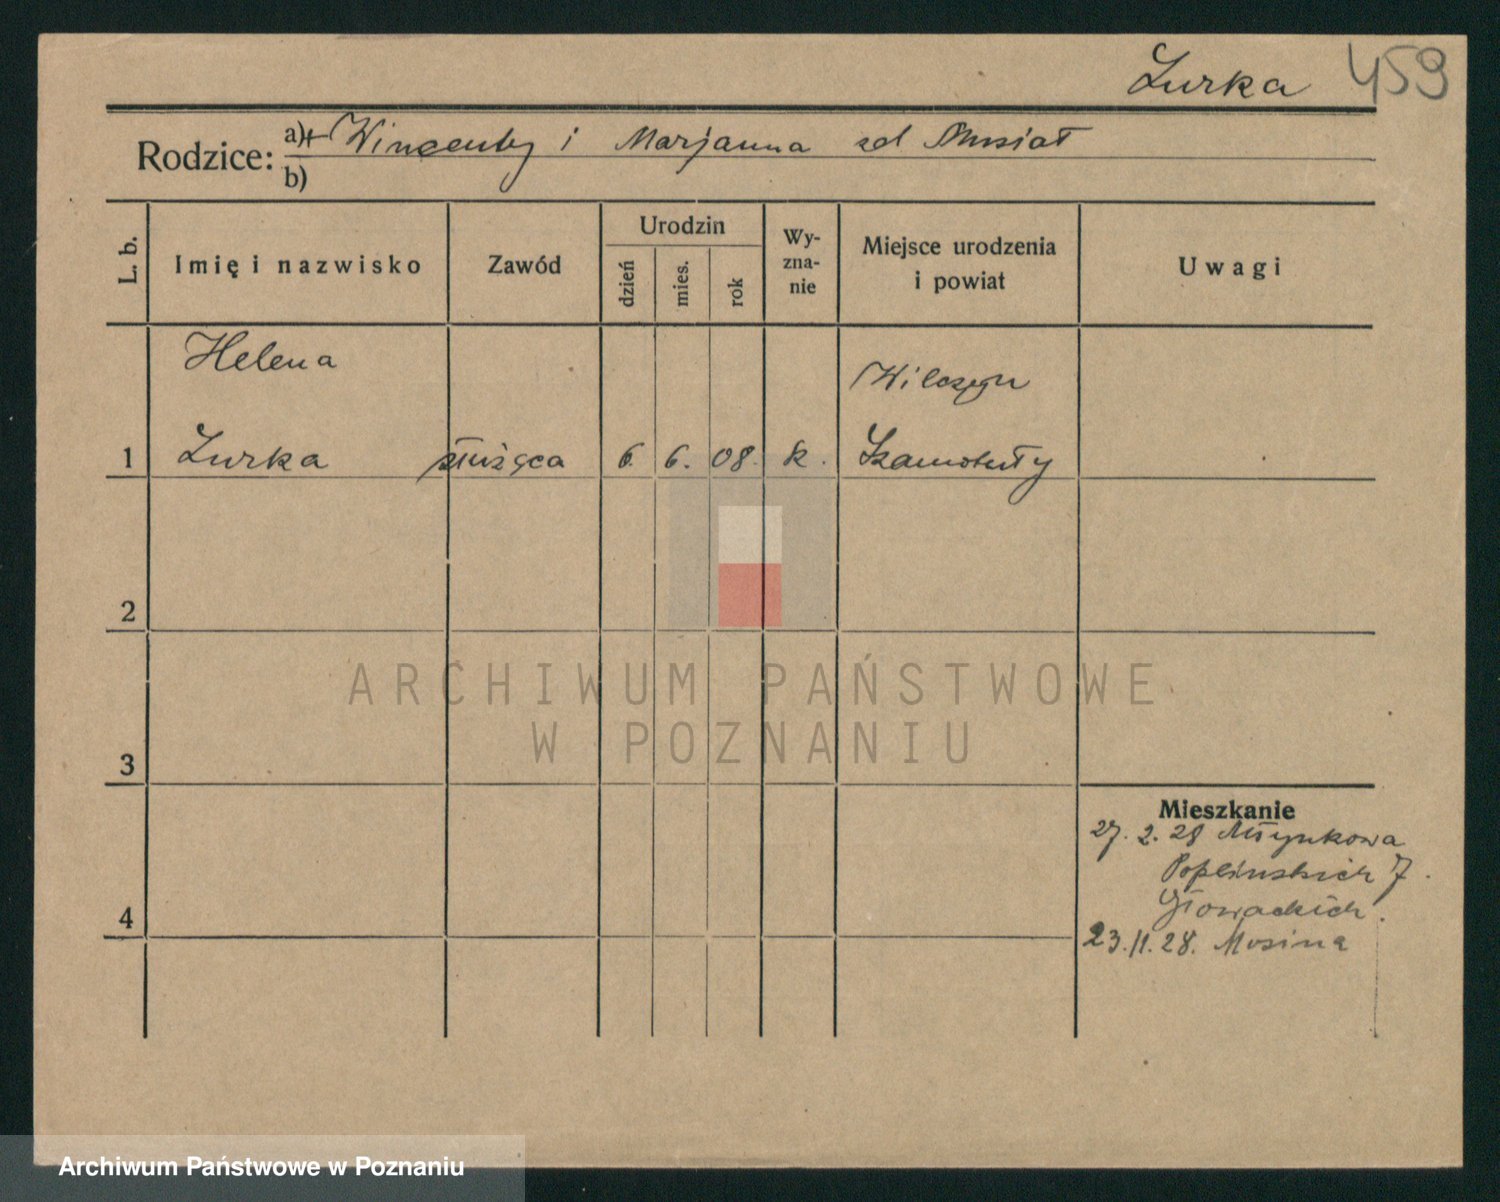 Żurka 459
Rodzice: a) + Wincenty i Marjanna zd Musiał
b)
L. b.
Imię i nazwisko
Zawód
Urodzin
dzień
mies.
rok
Wy-
zna-
nie
Miejsce urodzenia
i powiat
Uwagi
Helena
1 Żurka służąca 6. 6. 08. k. Szamotuły
2
3
4
Mieszkanie
27. 2. 28 Młynkowa
Poplińskich 7.
Głowackich.
23. 11. 28. Mosina
ARCHIWUM PAŃSTWOWE
W POZNANIU
Archiwum Państwowe w Poznaniu